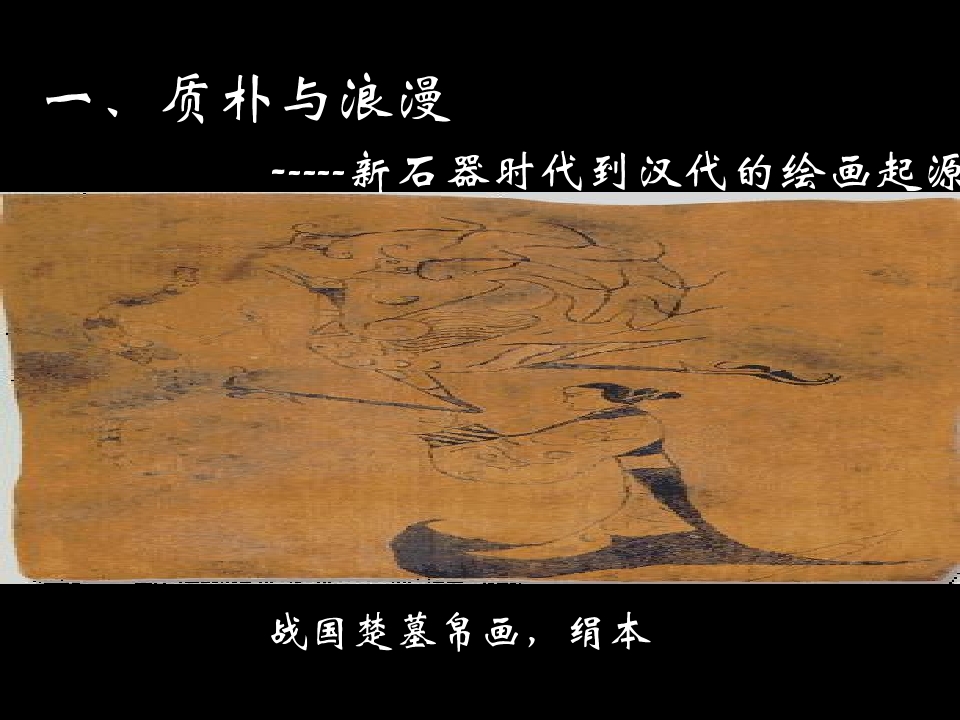 一、质朴与浪漫
-----新石器时代到汉代的绘画起源
战国楚墓帛画，绢本